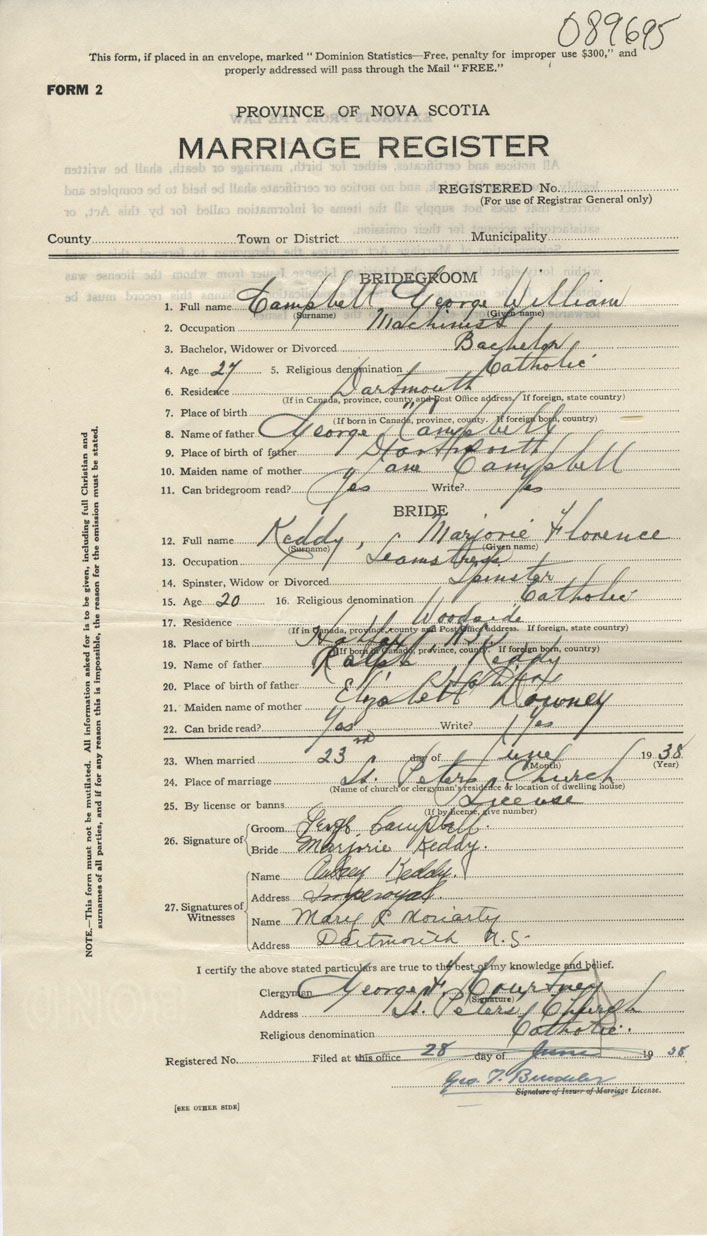 089695
This form, if placed in an envelope, marked "Dominion Statistics—Free, penalty for improper use $300," and
properly addressed will pass through the Mail "FREE."
FORM 2
PROVINCE OF NOVA SCOTIA
MARRIAGE REGISTER
REGISTERED No.
(For use of Registrar General only)
County Town or District Municipality
BRIDEGROOM
1. Full name Campbell George William
(Surname) (Given name)
2. Occupation Machinist
3. Bachelor, Widower or Divorced Bachelor
4. Age 27 5. Religious denomination Catholic
6. Residence Dartmouth
(If in Canada, province, county and Post Office address. If foreign, state country)
7. Place of birth "
(If born in Canada, province, county. If foreign born, country)
8. Name of father George Campbell
9. Place of birth of father Dartmouth
10. Maiden name of mother Jane Campbell
11. Can bridegroom read? Yes Write? Yes
BRIDE
12. Full name Keddy, Marjorie Florence
(Surname) (Given name)
13. Occupation Seamstress
14. Spinster, Widow or Divorced Spinster
15. Age 20 16. Religious denomination Catholic
17. Residence Woodside
(If in Canada, province, county and Post Office address. If foreign, state country)
18. Place of birth Halifax N.S.
(If born in Canada, province, county. If foreign born, country)
19. Name of father Ralph Keddy
20. Place of birth of father Halifax
21. Maiden name of mother Downey
22. Can bride read? Yes Write? Yes
23. When married 23rd day of June 1938
(Month) (Year)
24. Place of marriage St. Peters Church
(Name of church or clergyman's residence or location of dwelling house)
25. By license or banns License
(If by license, give number)
26. Signature of
Groom Campbell.
Bride Marjorie Keddy.
27. Signatures of Witnesses
Name Keddy.
Address Imperoyal.
Name Mary Moriarty
Address Dartmouth N.S.
I certify the above stated particulars are true to the best of my knowledge and belief.
Clergyman George Courtney
(Signature)
Address St. Peters Church
Religious denomination Catholic.
Registered No. Filed at this office 28 day of June 1938
Geo. T.
Signature of Issuer of Marriage License.
[SEE OTHER SIDE]
NOTE.—This form must not be mutilated. All information asked for is to be given, including full Christian and
surnames of all parties, and if for any reason this is impossible, the reason for the omission must be stated.